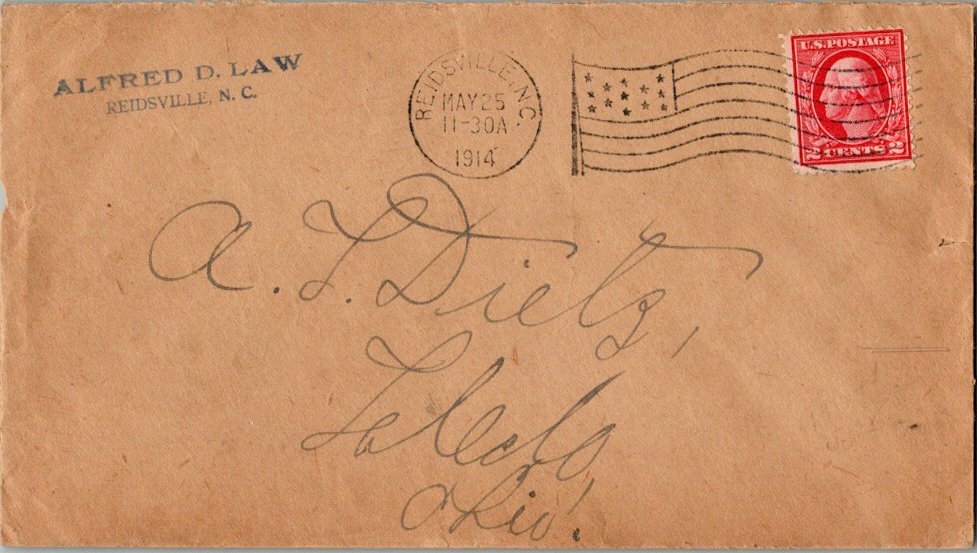 ALFRED D. LAW
REIDSVILLE, N. C.
REIDSVILLE, N.C.
MAY 25
11-30A
1914
U.S. POSTAGE
2 CENTS 2
A. T. Dietz,
Toledo,
Ohio.